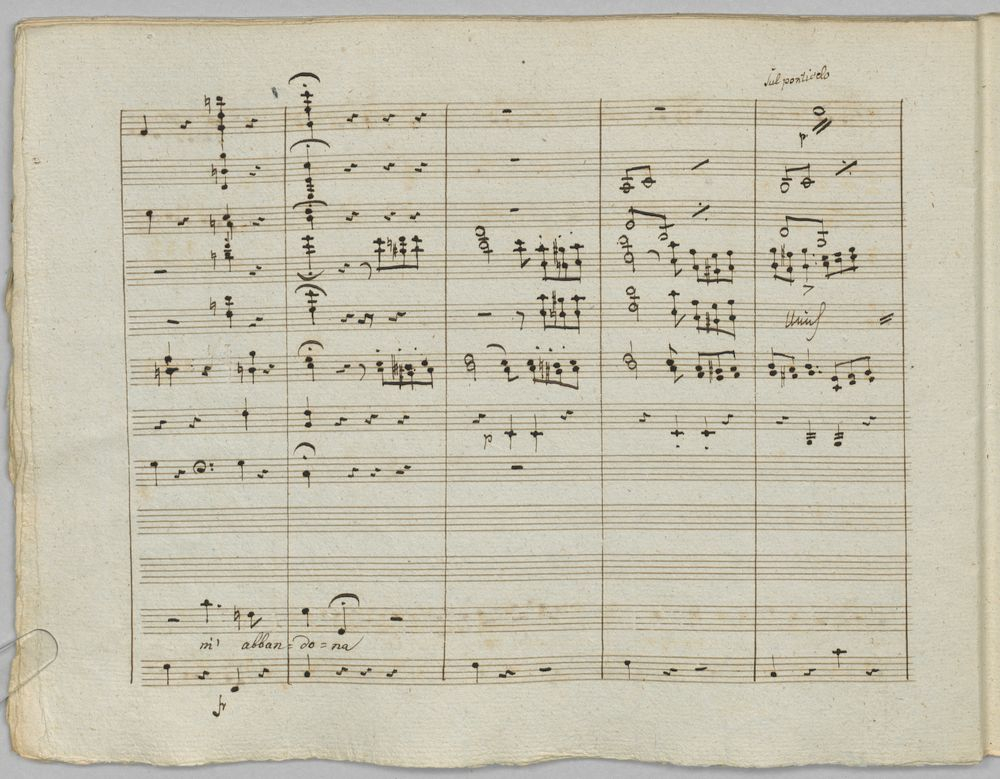 Sul ponticelo
p
Unis
p
m' abban=do=na